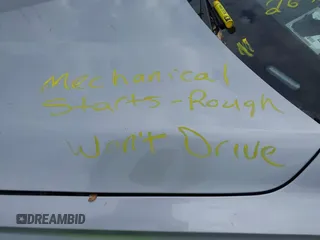 26
Mechanical
Starts-Rough
Won't Drive
DREAMBID